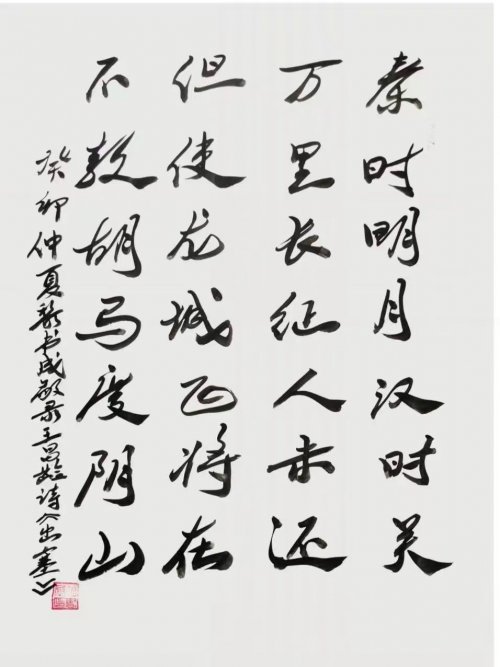 秦时明月汉时关
万里长征人未还
但使龙城飞将在
不教胡马度阴山
癸卯仲夏新书成敬录王昌龄诗《出塞》